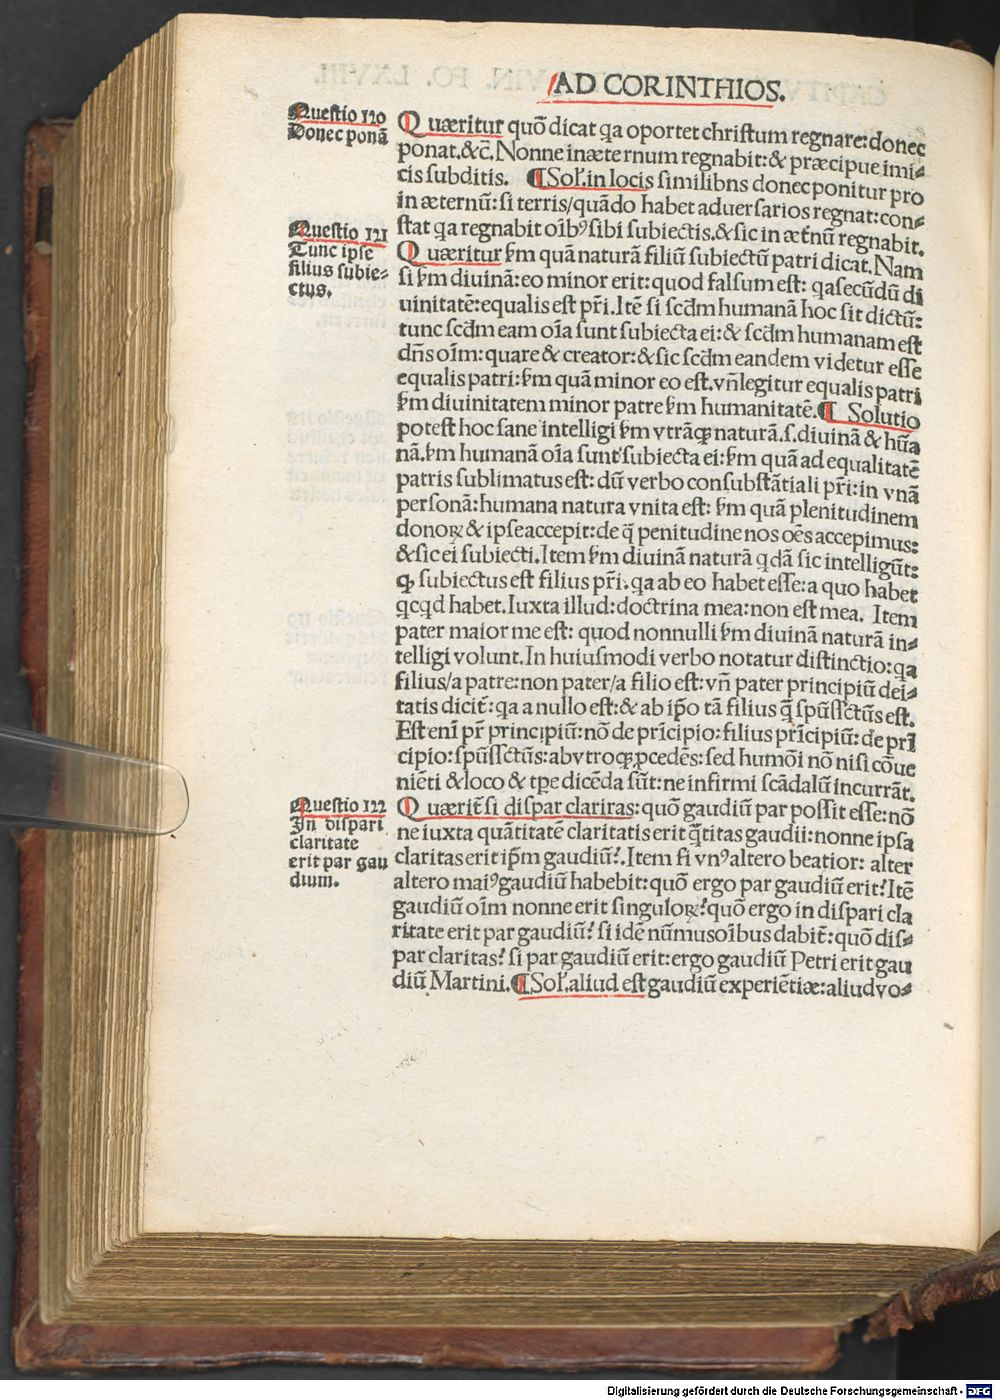 AD CORINTHIOS.
Questio 120
Donec ponā
Quæritur quō dicat qa oportet christum regnare: donec
ponat.&c̄. Nonne inæternum regnabit: & præcipue imi⸗
cis subditis. ¶Sol'.in locis similibns donec ponitur pro
in æternū: si terris/quādo habet aduersarios regnat: con⸗
stat qa regnabit oībꝰ sibi subiectis.& sic in æt̄nū regnabit.
Questio 121
Tunc ipse
filius subie⸗
ctus.
Quæritur ẜm quā naturā filiū subiectū patri dicat. Nam
si ẜm diuinā: eo minor erit: quod falsum est: qa secūdū di
uinitatē: equalis est pr̄i. Itē si scd̄m humanā hoc sit dictū:
tunc scd̄m eam oīa sunt subiecta ei: & scd̄m humanam est
dn̄s oīm: quare & creator: & sic scd̄m eandem videtur esse
equalis patri: ẜm quā minor eo est. vn̄ legitur equalis patri
ẜm diuinitatem minor patre ẜm humanitatē.¶ Solutio
potest hoc sane intelligi ẜm vtrāqꝫ naturā.s.diuinā & hūa
nā. ẜm humanā oīa sunt subiecta ei: ẜm quā ad equalitatē
patris sublimatus est: dū verbo consubstātiali pr̄i: in vnā
personā: humana natura vnita est: ẜm quā plenitudinem
donoꝝ & ipse accepit: de q̄ penitudine nos oēs accepimus:
& sic ei subiecti. Item ẜm diuinā naturā qdā sic intelligūt:
ꝙ subiectus est filius pr̄i, qa ab eo habet esse: a quo habet
qcqd habet. Iuxta illud: doctrina mea: non est mea. Item
pater maior me est: quod nonnulli ẜm diuinā naturā in⸗
telligi volunt. In huiusmodi verbo notatur distinctio: qa
filius/a patre: non pater/a filio est: vn̄ pater principiū dei⸗
tatis dicit̄: qa a nullo est: & ab ip̄o tā filius q̄ spūssctūs est.
Est enī pr̄ principiū: nō de prīcipio: filius prīcipiū: de prī
cipio: spūssctūs: ab vtroqꝫ ꝓcedēs: sed humōi nō nisi cōue
niēti & loco & tp̄e dicēda sūt: ne infirmi scādalū incurrāt.
Questio 122
In dispari
claritate
erit par gau
dium.
Quærit̄ si dispar clariras: quō gaudiū par possit esse: nō
ne iuxta quātitatē claritatis erit q̄titas gaudii: nonne ipsa
claritas erit ip̄m gaudiū?. Item si vnꝰ altero beatior: alter
altero maiꝰ gaudiū habebit: quō ergo par gaudiū erit? Itē
gaudiū oīm nonne erit singuloꝝ? quō ergo in dispari cla
ritate erit par gaudiū? si idē nūmus oībus dabit̄: quō dis⸗
par claritas? si par gaudiū erit: ergo gaudiū Petri erit gau
diū Martini.¶Sol'.aliud est gaudiū experiētiæ: aliud vo⸗
Digitalisierung gefördert durch die Deutsche Forschungsgemeinschaft - DFG